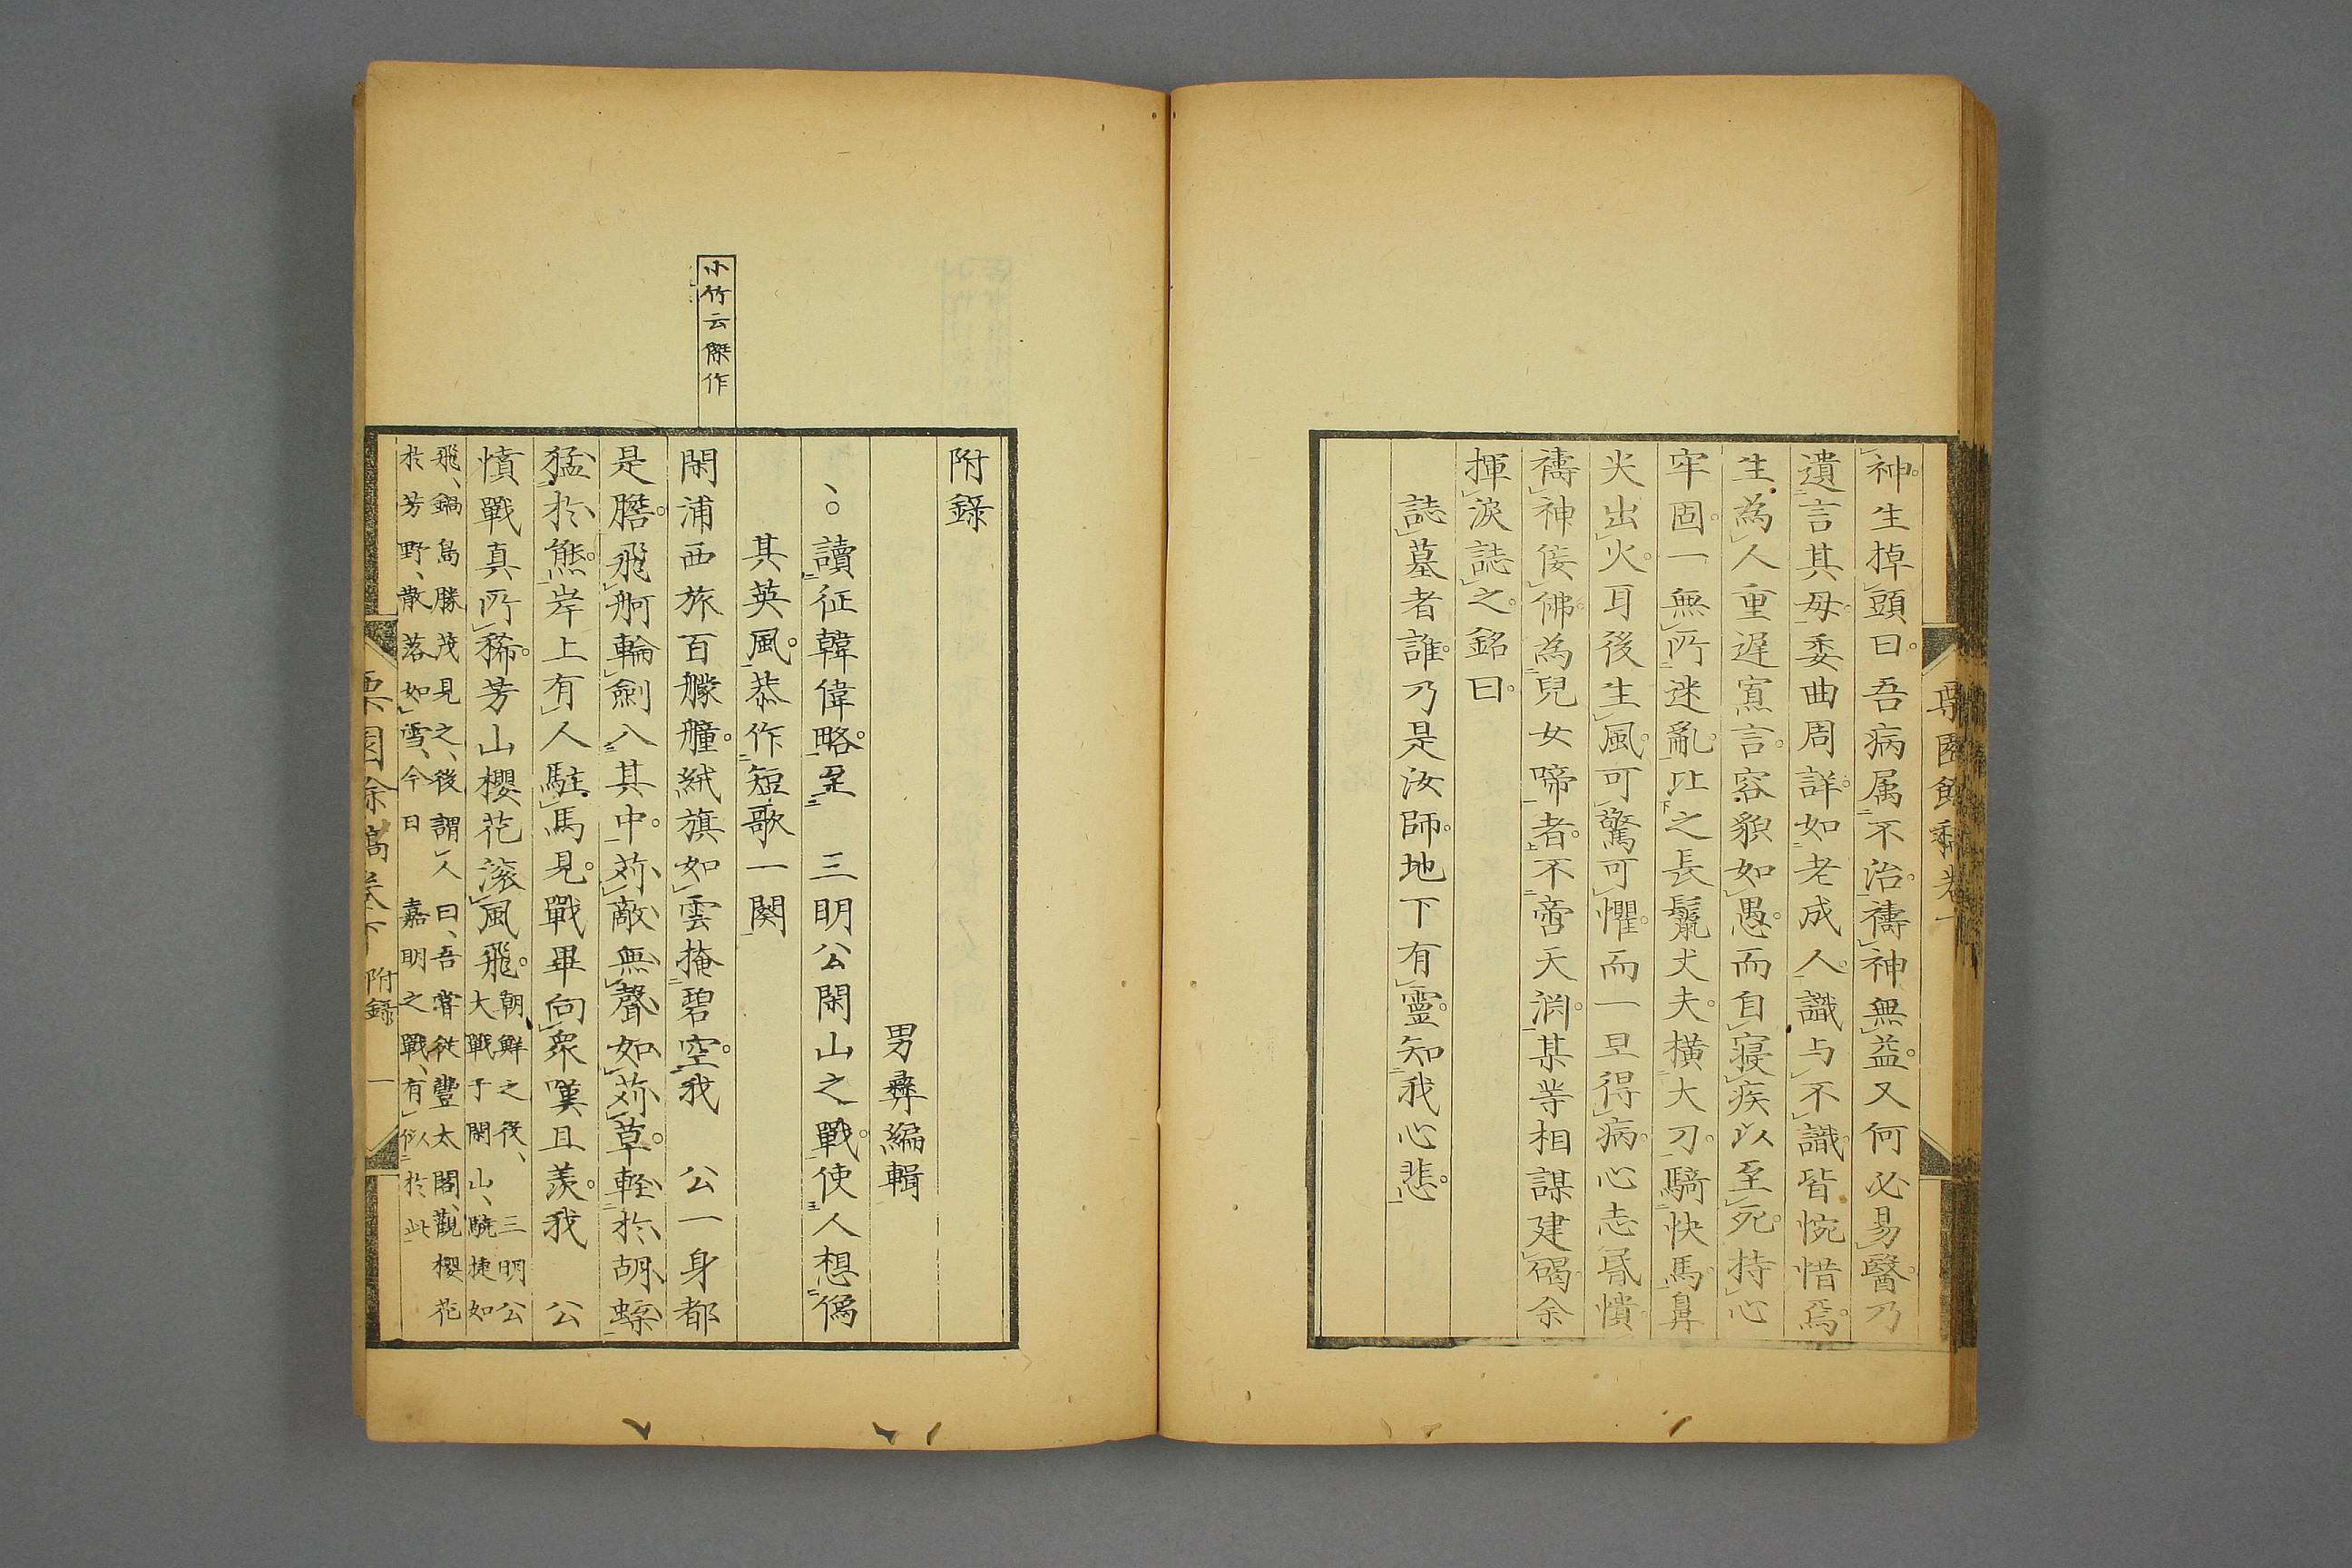 神生掉頭曰吾病属不治禱神無益又何必易醫乃
遺言其母委曲周詳如老成人識与不識皆惋惜焉
生為人重遅寡言容貌如愚而自寝疾以至死持心
牢固一無所迷亂比之長鬣丈夫横大刀騎快馬鼻
尖出火耳後生風可驚可懼而一旦得病心志昏憒
禱神佞佛為兒女啼者不啻天渕某等相謀建碣余
揮涙誌之銘曰
誌墓者誰乃是汝師地下有靈知我心悲
附錄
男彝編輯
讀征韓偉略至　三明公閑山之戰使人想儁
其英風恭作短歌一闋
小竹云傑作
閑浦西旅百艨艟絨旗如雲掩碧空我　公一身都
是膽飛舸輪劍入其中苅敵無聲如苅草輕於胡蝶
猛於熊岸上有人駐馬見戰畢向衆嘆且羨我　公
憤戰真所稀芳山櫻花滚風飛
朝鮮之後、三明公
大戰于閑山、驍捷如
飛、鍋島勝茂見之、後謂人曰、吾嘗従豐太閤、觀櫻花
於芳野、散落如雪、今日　嘉明之戰、有似於此
栗園餘稿巻下　附錄　一